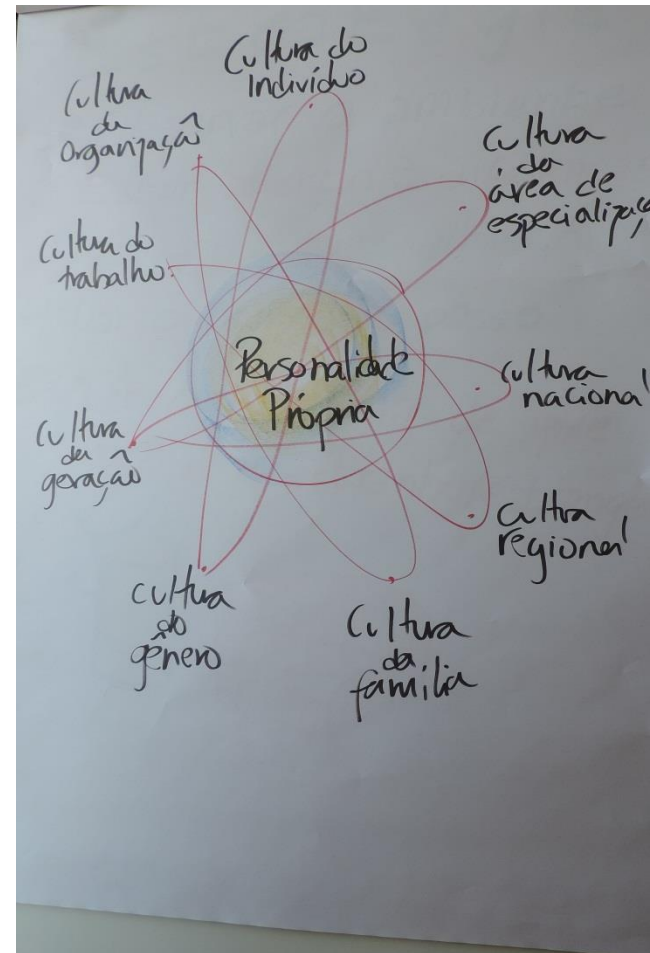 Cultura do
Indivíduo
Cultura
da
Organização
Cultura
da
área de
especializaç
Cultura do
trabalho
Personalidade
Própria
Cultura
nacional
Cultura
da
geração
Cultura
regional
Cultura
do
gênero
Cultura
da
família